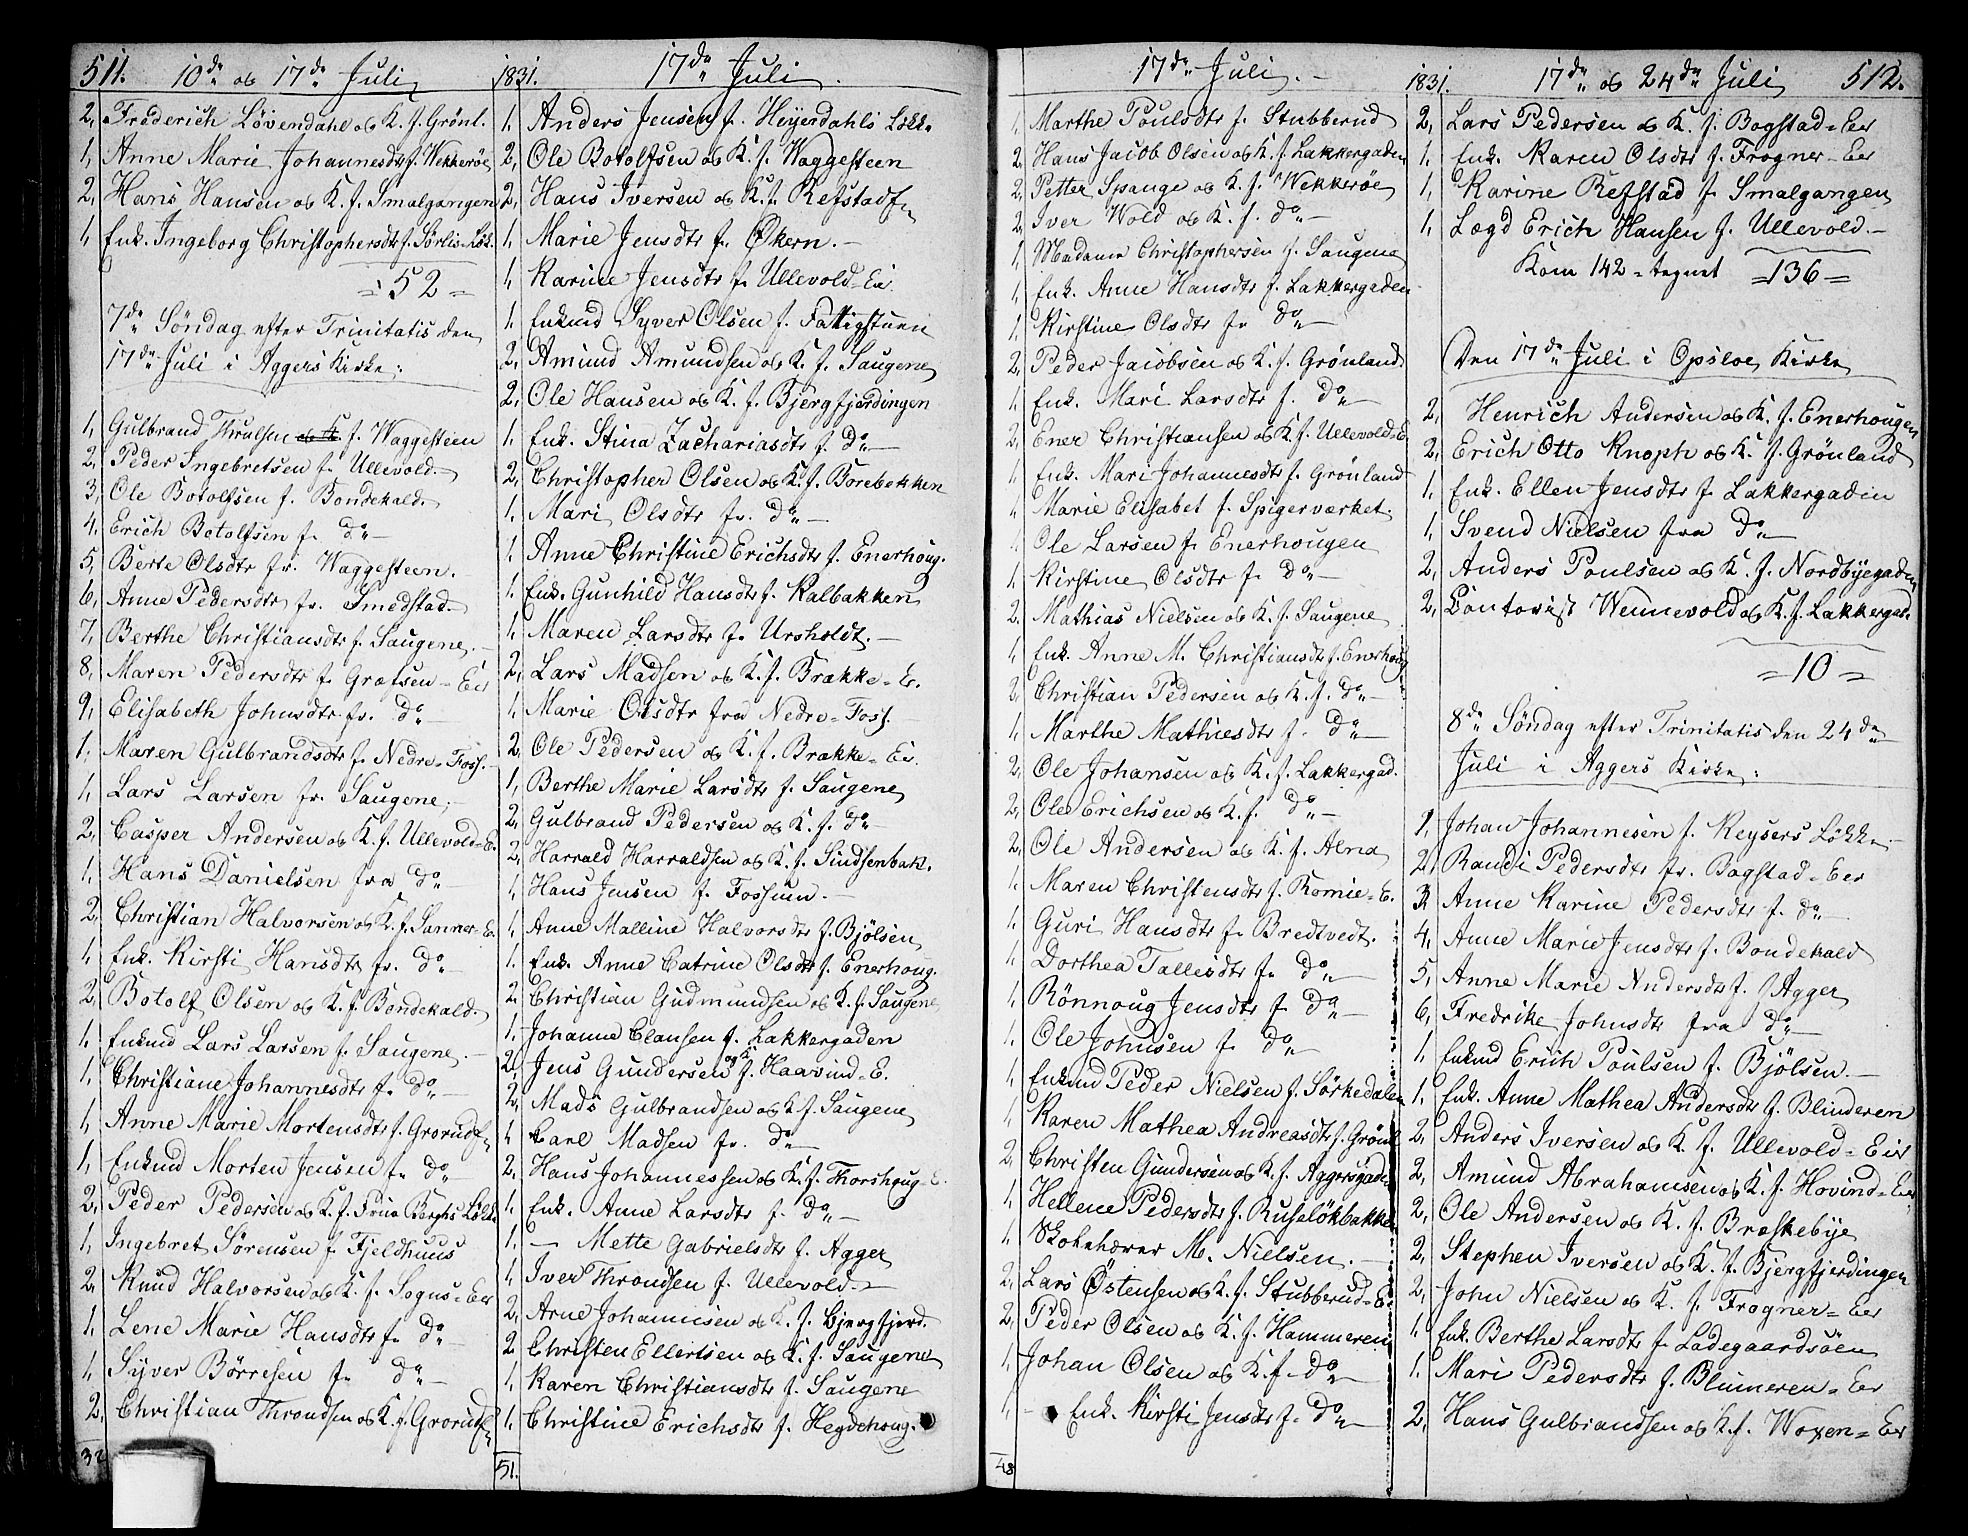 511. 10de og 17de Juli
2, Frederich Lövendahl og K. f. Grönl.
1, Anne Marie Johannesdtr f. Wækkeröe
2, Hans Hansen og K. f. Smalgangen
1, Enk. Ingeborg Christophersdtr f. Sörlis-Lök.
= 52 =
7de Söndag efter Trinitatis den
17de Juli i Aggers Kirke:
1, Gulbrand Thrulsen og K. f. Waggesteen
2, Peder Ingebretsen fr. Ullevold.
3, Ole Botolfsen f. Bondekald.
4, Erich Botolfsen f. do
5, Berte Olsdtr fr. Waggesteen.
6, Anne Pedersdtr fr. Smedstad.
7, Berthe Christiansdtr f. Saugene.
8, Maren Pedersdtr f. Grefsen-Eie
9, Elisabeth Johnsdtr fr. do
1, Maren Gulbrandsdtr f. Nedre-Foss.
1, Lars Larsen fr. Saugene,
2, Casper Andersen og K. f. Ullevold-E.
1, Hans Danielsen fra do
2, Christian Halvorsen og K. f. Sanner-E.
1, Enk. Kirsti Hansdtr fr. do
2, Botolf Olsen og K. f. Bondekald.
1, Enkmd Lars Larsen f. Saugene.
1, Christiane Johannesdtr f. do
1, Anne Marie Mortensdtr f. Grorud
1, Enkmd Morten Jensen fr. do
2, Peder Pedersen og K. f. Frue Berghs Lökke
1, Ingebret Sörensen f. Fjeldhuus
2, Knud Halvorsen og K. f. Sogns-Eie
1, Lene Marie Hansdtr f. do
1, Syver Börresen fr. do
2, Christian Throndsen og K. f. Grorud
32
1831. 17de Juli.
1, Anders Jensen f. Heyerdahls Lökke
2, Ole Botolfsen og K. f. Waggesteen
2, Hans Iversen og K. f. Refstad
1, Marie Jensdtr f. Økern.
1, Karine Jensdtr fr. Ullevold-Eie.
1, Enkmd Syver Olsen f. Fattigstuen
2, Amund Amundsen og K. f. Saugene
2, Ole Hansen og K. f. Bjergfjerdingen
1, Enk. Stina Zachariasdtr f. do
2, Christopher Olsen og K. f. Borebakken
1, Mari Olsdtr fr. do
1, Anne Christine Erichsdtr f. Enerhoug.
1, Enk. Gunhild Hansdtr f. Kalbakken
1, Maren Larsdtr fr. Ursholdt.
2, Lars Madsen og K. f. Brække-E.
1, Marie Olsdtr fra Nedre-Foss.
2, Ole Pedersen og K. f. Brække-Eie.
1, Berthe Marie Larsdtr f. Saugene
2, Gulbrand Pedersen og K. f. do
2, Harrald Harraldsen og K. f. Sindsenbak.
1, Hans Jensen f. Fossum.
1, Anne Malline Halvorsdtr f. Bjölsen
1, Enk. Anne Catrine Olsdtr f. Enerhoug.
2, Christian Gudmundsen og K. f. Saugene
1, Johanne Clausen f. Lakkergaden
2, Jens Gundersen og K. f. Haavind-E.
2, Mads Gulbrandsen og K. f. Saugene
1, Carl Madsen fr. do
2, Hans Johannessen og K. f. Thorshoug-E.
1, Enk. Anne Larsdtr f. do
1, — Mette Gabrielsdtr f. Agger
1, Iver Throndsen f. Ullevold.
2, Arne Johannesen og K. f. Bjergfjerd.
2, Christen Ellertsen og K. f. Saugene
1, Karen Christiansdtr f. Saugene
1, Christine Erichsdtr f. Hegdehoug.
51.
17de Juli.
1, Marthe Poulsdtr f. Stubberud
2, Hans Jacob Olsen og K. f. Lakkergaden
2, Petter Spange og K. f. Wækkeröe
2, Iver Wold og K. f. do
1, Madame Christophersen f. Saugene
1, Enk. Anne Hansdtr f. Lakkergaden
1, Kirstine Olsdtr fr. do
2, Peder Jacobsen og K. f. Grönland
1, Enk. Mari Larsdtr f. do
2, Ener Christiansen og K. f. Ullevold-E.
1, Enk. Mari Johannesdtr f. Grönland
1, Marie Elisabet f. Spigerværket.
1, Ole Larsen f. Enerhougen
1, Kirstine Olsdtr f. do
2, Mathias Nielsen og K. f. Saugene
1, Enk. Anne M. Christiansdtr f. Enerhoug
2, Christian Pedersen og K. f. do
1, Marthe Mathiesdtr f. do
2, Ole Johansen og K. f. Lakkergad.
2, Ole Erichsen og K. f. do
2, Ole Andersen og K. f. Alna
1, Maren Christensdtr f. Romie-E.
1, Guri Hansdtr f. Bredtvedt.
1, Dorthea Tallesdtr f. do
1, Rönnoug Jensdtr f. do
1, Ole Johnsen f. do
1, Enkmd Peder Nielsen f. Sörkedalen
1, Karen Mathea Andreasdtr f. Grönl.
2, Christen Gundersen og K. f. Aggersgade
1, Hellene Pedersdtr f. Ruselökbakken
1, Skoleholder M. Nielsen.
2, Lars Östensen og K. f. Stubberud-E.
2, Peder Olsen og K. f. Hammeren
1, Johan Olsen og K. f. do
1, Enk. Kirsti Jensdtr f. do
48
1831. 17de og 24de Juli 512.
2, Lars Pedersen og K. f. Bogstad-Eie
1, Enk. Karen Olsdtr f. Frogner-Eie
1, Karine Refstad f. Smalgangen
1, Lægd Erich Hansen f. Ullevold.
Kom 142 - tegnet =136=
Den 17de Juli i Opsloe Kirke
2, Henrich Andersen og K. f. Enerhougen
2, Erich Otto Knoph og K. f. Grönland
1, Enk. Ellen Jensdtr f. Lakkergaden
1, Svend Nielsen fra do
2, Anders Poulsen og K. f. Nordbyegaden
2, Contorist Wennevold og K. f. Lakkergad.
= 10 =
8de Söndag efter Trinitatis den 24de
Juli i Aggers Kirke:
1, Johan Johannesen f. Keysers Lökke
2, Randi Pedersdtr fr. Bogstad-Eie
3, Anne Karine Pedersdtr f. do
4, Anne Marie Jensdtr f. Bondekald
5, Anne Marie Andersdtr f. Agger
6, Fredrike Johnsdtr fra do
1, Enkmd Erich Poulsen f. Bjölsen.
1, Enk. Anne Mathea Andersdtr f. Blinderen
2, Anders Iversen og K. f. Ullevold-Eie
2, Amund Abrahamsen og K. f. Hovind-Eie
2, Ole Andersen og K. f. Bræskebye
2, Stephen Iversen og K. f. Bjergfjerdingen
2, John Nielsen og K. f. Frogner-Eie
1, Enk. Berthe Larsdtr f. Ladegaardsöen
1, Mari Pedersdtr f. Blinneren-Eie
2, Hans Gulbrandsen og K. f. Woxen-Eie